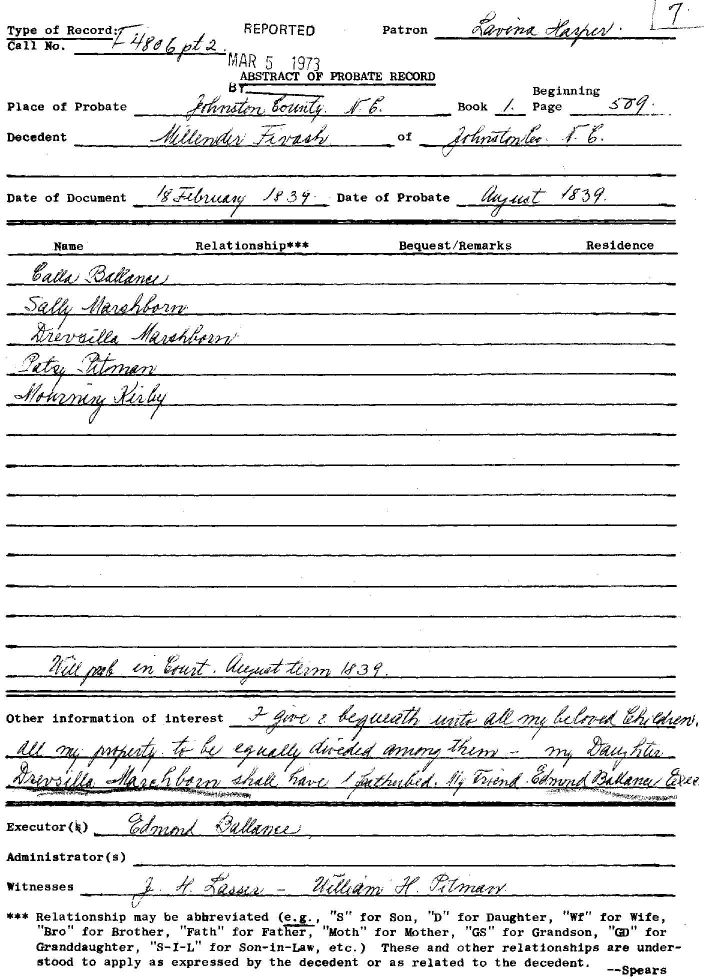 7.
Type of Record: F 4806 pt 2. REPORTED Patron Lavina Harper.
Call No.
MAR 5 1973
ABSTRACT OF PROBATE RECORD
BY
Beginning
Place of Probate Johnston County. N.C. Book 1. Page 509.
Decedent Millender Fivash of Johnston Co. N.C.
Date of Document 18 February 1839. Date of Probate August 1839.
Name Relationship*** Bequest/Remarks Residence
Calla Ballance
Sally Marshborn
Drevsilla Marshborn
Patsy Pitman
Mourning Kirby
Will prob in Court. August term 1839.
Other information of interest I give & bequeath unto all my beloved Children,
all my property to be equally divided among them - my Daughter
Drevsilla Marshborn shall have 1 fatherbed. My Friend Edmond Ballance Exec
Executor(s) Edmond Ballance
Administrator(s)
Witnesses J. H. - William H. Pitman
*** Relationship may be abbreviated (e.g., "S" for Son, "D" for Daughter, "Wf" for Wife,
"Bro" for Brother, "Fath" for Father, "Moth" for Mother, "GS" for Grandson, "GD" for
Granddaughter, "S-I-L" for Son-in-Law, etc.) These and other relationships are under-
stood to apply as expressed by the decedent or as related to the decedent.
--Spears